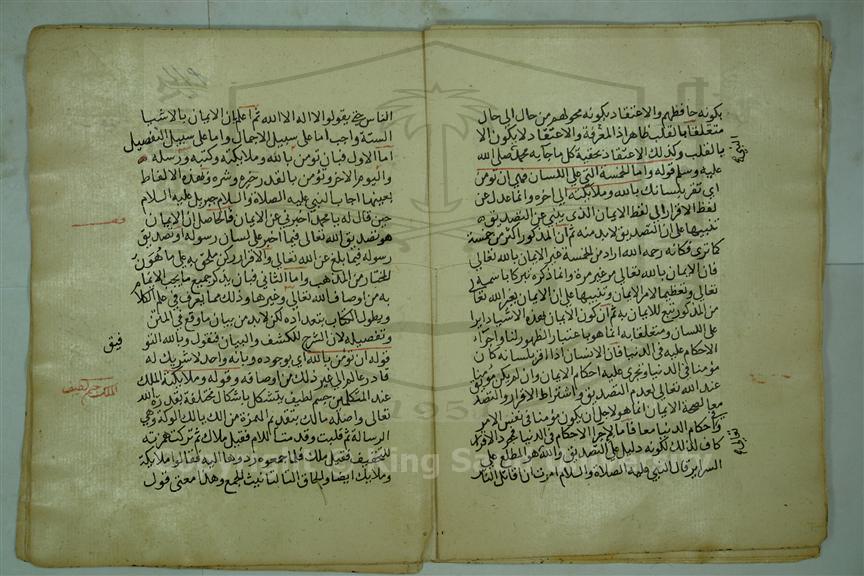 بكونه حافظهم والاعتقاد بكونه محولهم من حال الى حال
متعلقا بالقلب ظاهرا ذ المعرفة والاعتقاد لا يكون الا
بالقلب وكذلك الاعتقاد بحقية كل ما جاء به محمد صلى الله
عليه وسلم قوله واما الخمسة التي على اللسان فهي ان تؤمن
اي تقر بلسانك بالله وملائكته الى اخره وانما عدل عن
لفظ الاقرار الى لفظ الايمان الذي ينبئ عن التصديق به
تنبيها على ان التصديق لابد منه ثم ان المذكور اكثر من خمسة
كما ترى فكانه رحمه الله اراد من الخمسة غير الايمان بالله تعالى
فان الايمان بالله تعالى مر غير مرة وانما ذكره تبركا باسمه
تعالى وتعظيما لامر الايمان وتنبيها على ان الايمان بغير الله تعا
من المذكور تبع للايمان به ثم ان كون الايمان بهذه الاشياء دايرا
على اللسان ومتعلقا به انما هو باعتبار الظهور لنا واجراء
الاحكام عليه في الدنيا فان الانسان اذا اقر بلسانه كان
مؤمنا في الدنيا وتجري عليه احكام الايمان وان لم يكن مؤمنا
عند الله تعالى لعدم التصديق واشتراط الاقرار والتصديق
معا لصحة الايمان انما هو لاجل ان يكون مؤمنا في نفس الامر
واحكام الدنيا معا فاما لاجراء الاحكام في الدنيا فمجرد الاقرار
كاف لذلك لكونه دليل على التصديق والله هو المطلع على
السراير قال النبي عليه الصلاة والسلام امرت ان اقاتل الناس
الناس حتى يقولوا لا اله الا الله ثم اعلم ان الايمان بالاشيا
الستة واجب اما على سبيل الاجمال واما على سبيل التفصيل
اما الاول فبان تؤمن بالله وملائكته وكتبه ورسله
واليوم الاخر وتؤمن بالقدر خيره وشره وبهذه الالفاظ
بعينها اجاب النبي عليه الصلاة والسلام جبريل عليه السلام
حين قال له يا محمد اخبرني عن الايمان فالحاصل ان الايمان
هو تصديق الله تعالى فيما اخبر على لسان رسوله او تصديق
رسوله فيما بلغ عن الله تعالى والاقرار ركن ملحق به على ما هو
المختار من المذهب واما الثاني فبان يذكر جميع ما يجب الايمان
به من اوصاف الله تعالى وغيرها وذلك مما يعرف في علم الكلا
ويطول الكتاب بتعداده لكن لابد من بيان ما وقع في المتن
وتفصيله لان الشرح للكشف والبيان فنقول وبالله التو
فيق
قوله ان تؤمن بالله اي بوجوده وبانه واحد لا شريك له
قادر عالم الى غير ذلك من اوصافه وقوله وملائكته الملك
عند المتكلمين جسم لطيف يتشكل باشكال مختلفة بقدرة الله
تعالى واصله مالك بتقديم الهمزة من الالوكة وهي
الرسالة ثم قلبت وقدمت اللام فقيل ملأك ثم تركت همزته
للتخفيف فقيل ملك فلما جمعوه ردوها اليه فقالوا ملايكة
وملايك ايضا والحاق التا لتانيث الجمع وهذا معنى قول